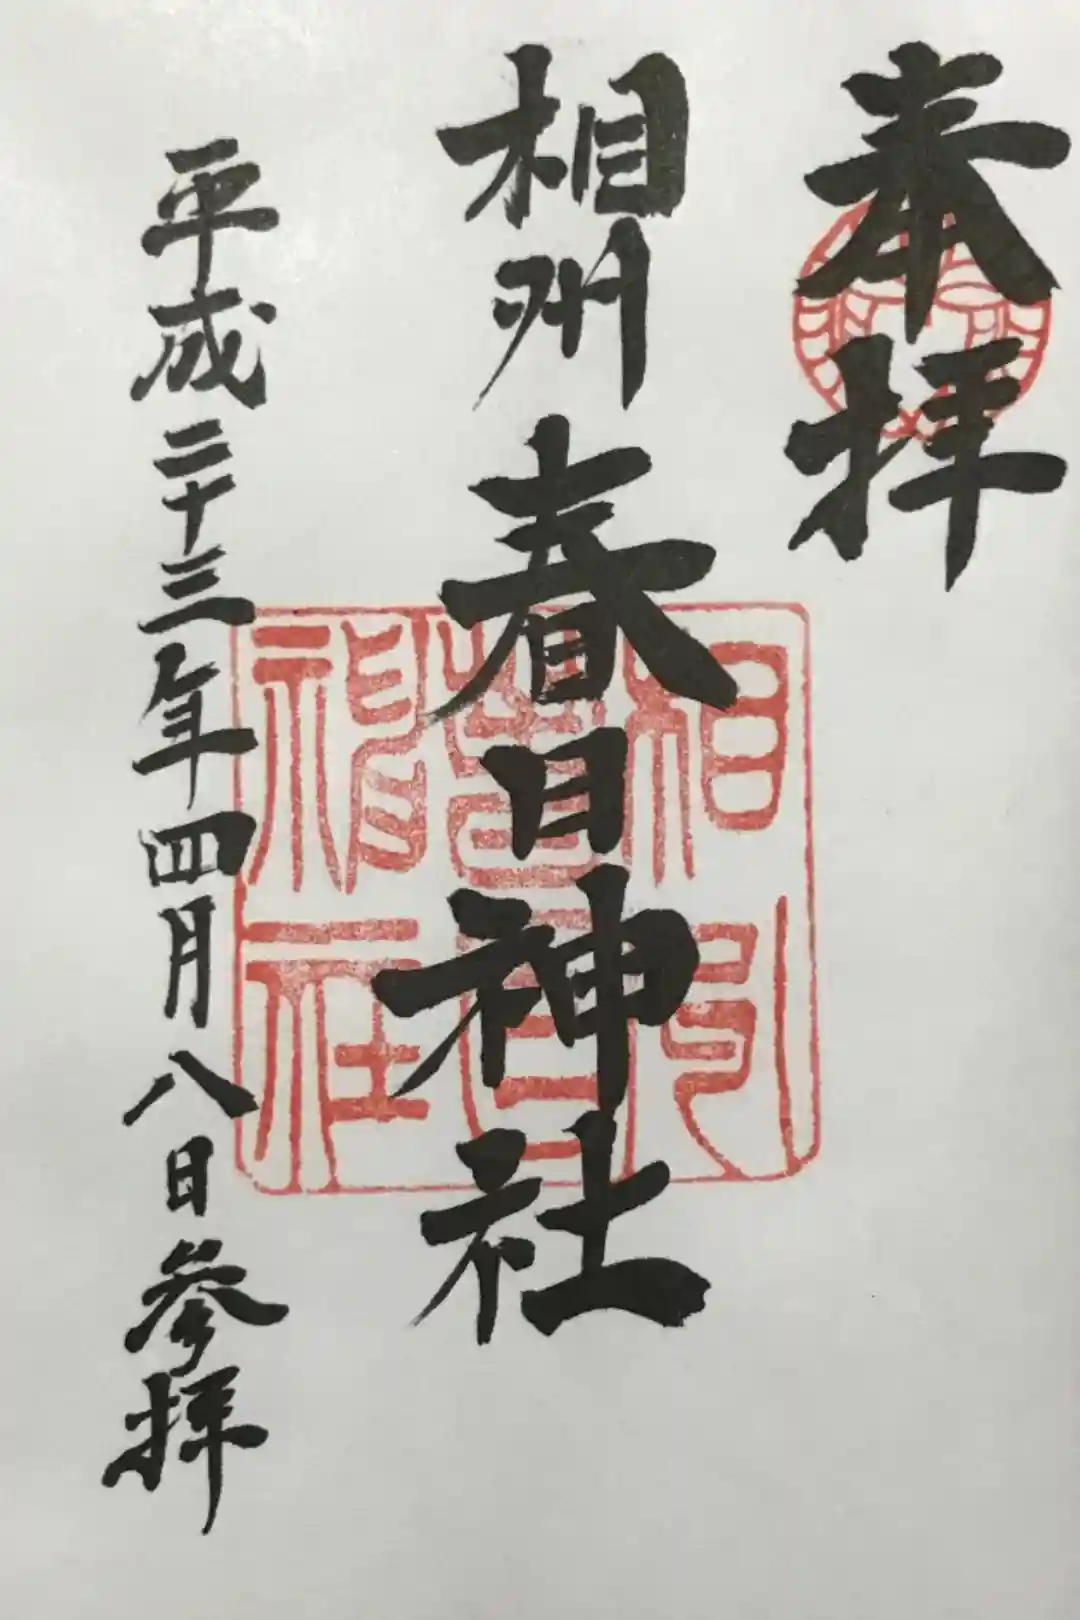 奉拝
相州春日神社
平成二十三年四月八日参拝
相州春日神社